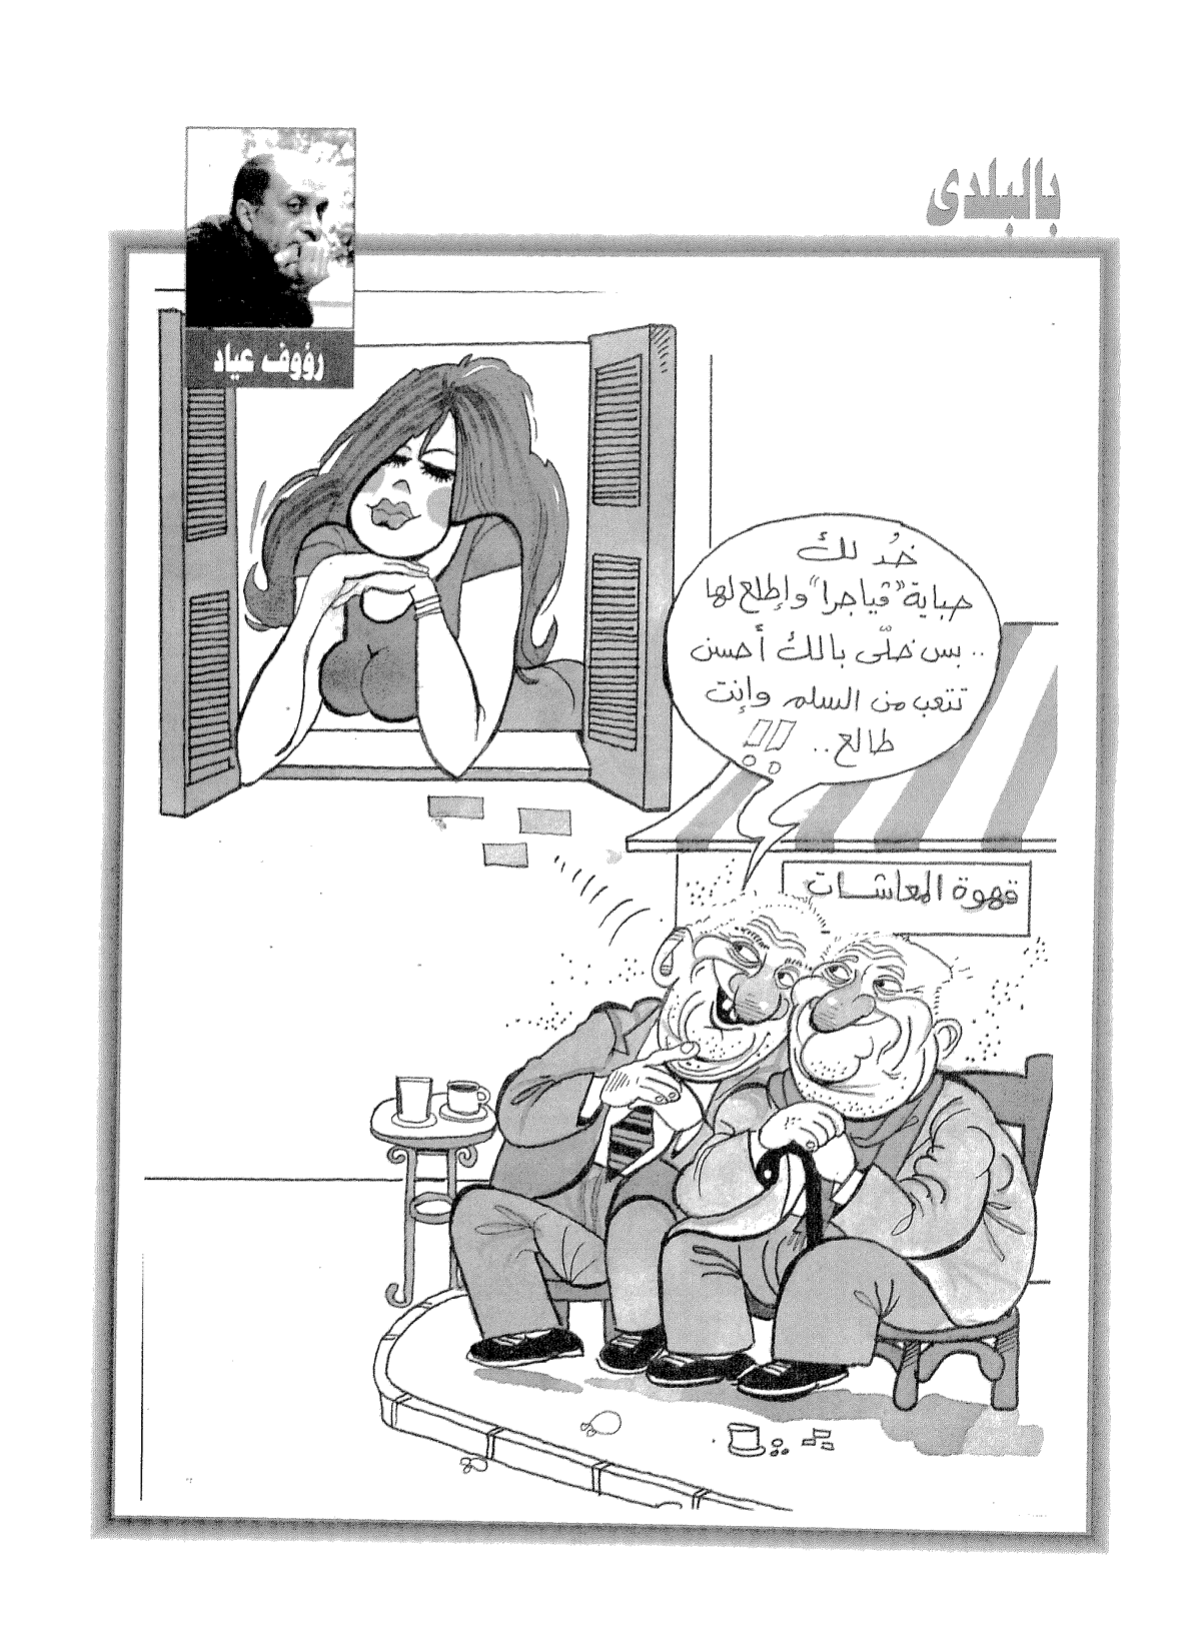 بالبلدى
رؤوف عياد
خُد لك
حباية "ڤياجرا" وإطلع لها
.. بس خلّى بالك أحسن
تتعب من السلم وإنت
طالع.. !!
قهوة المعاشات